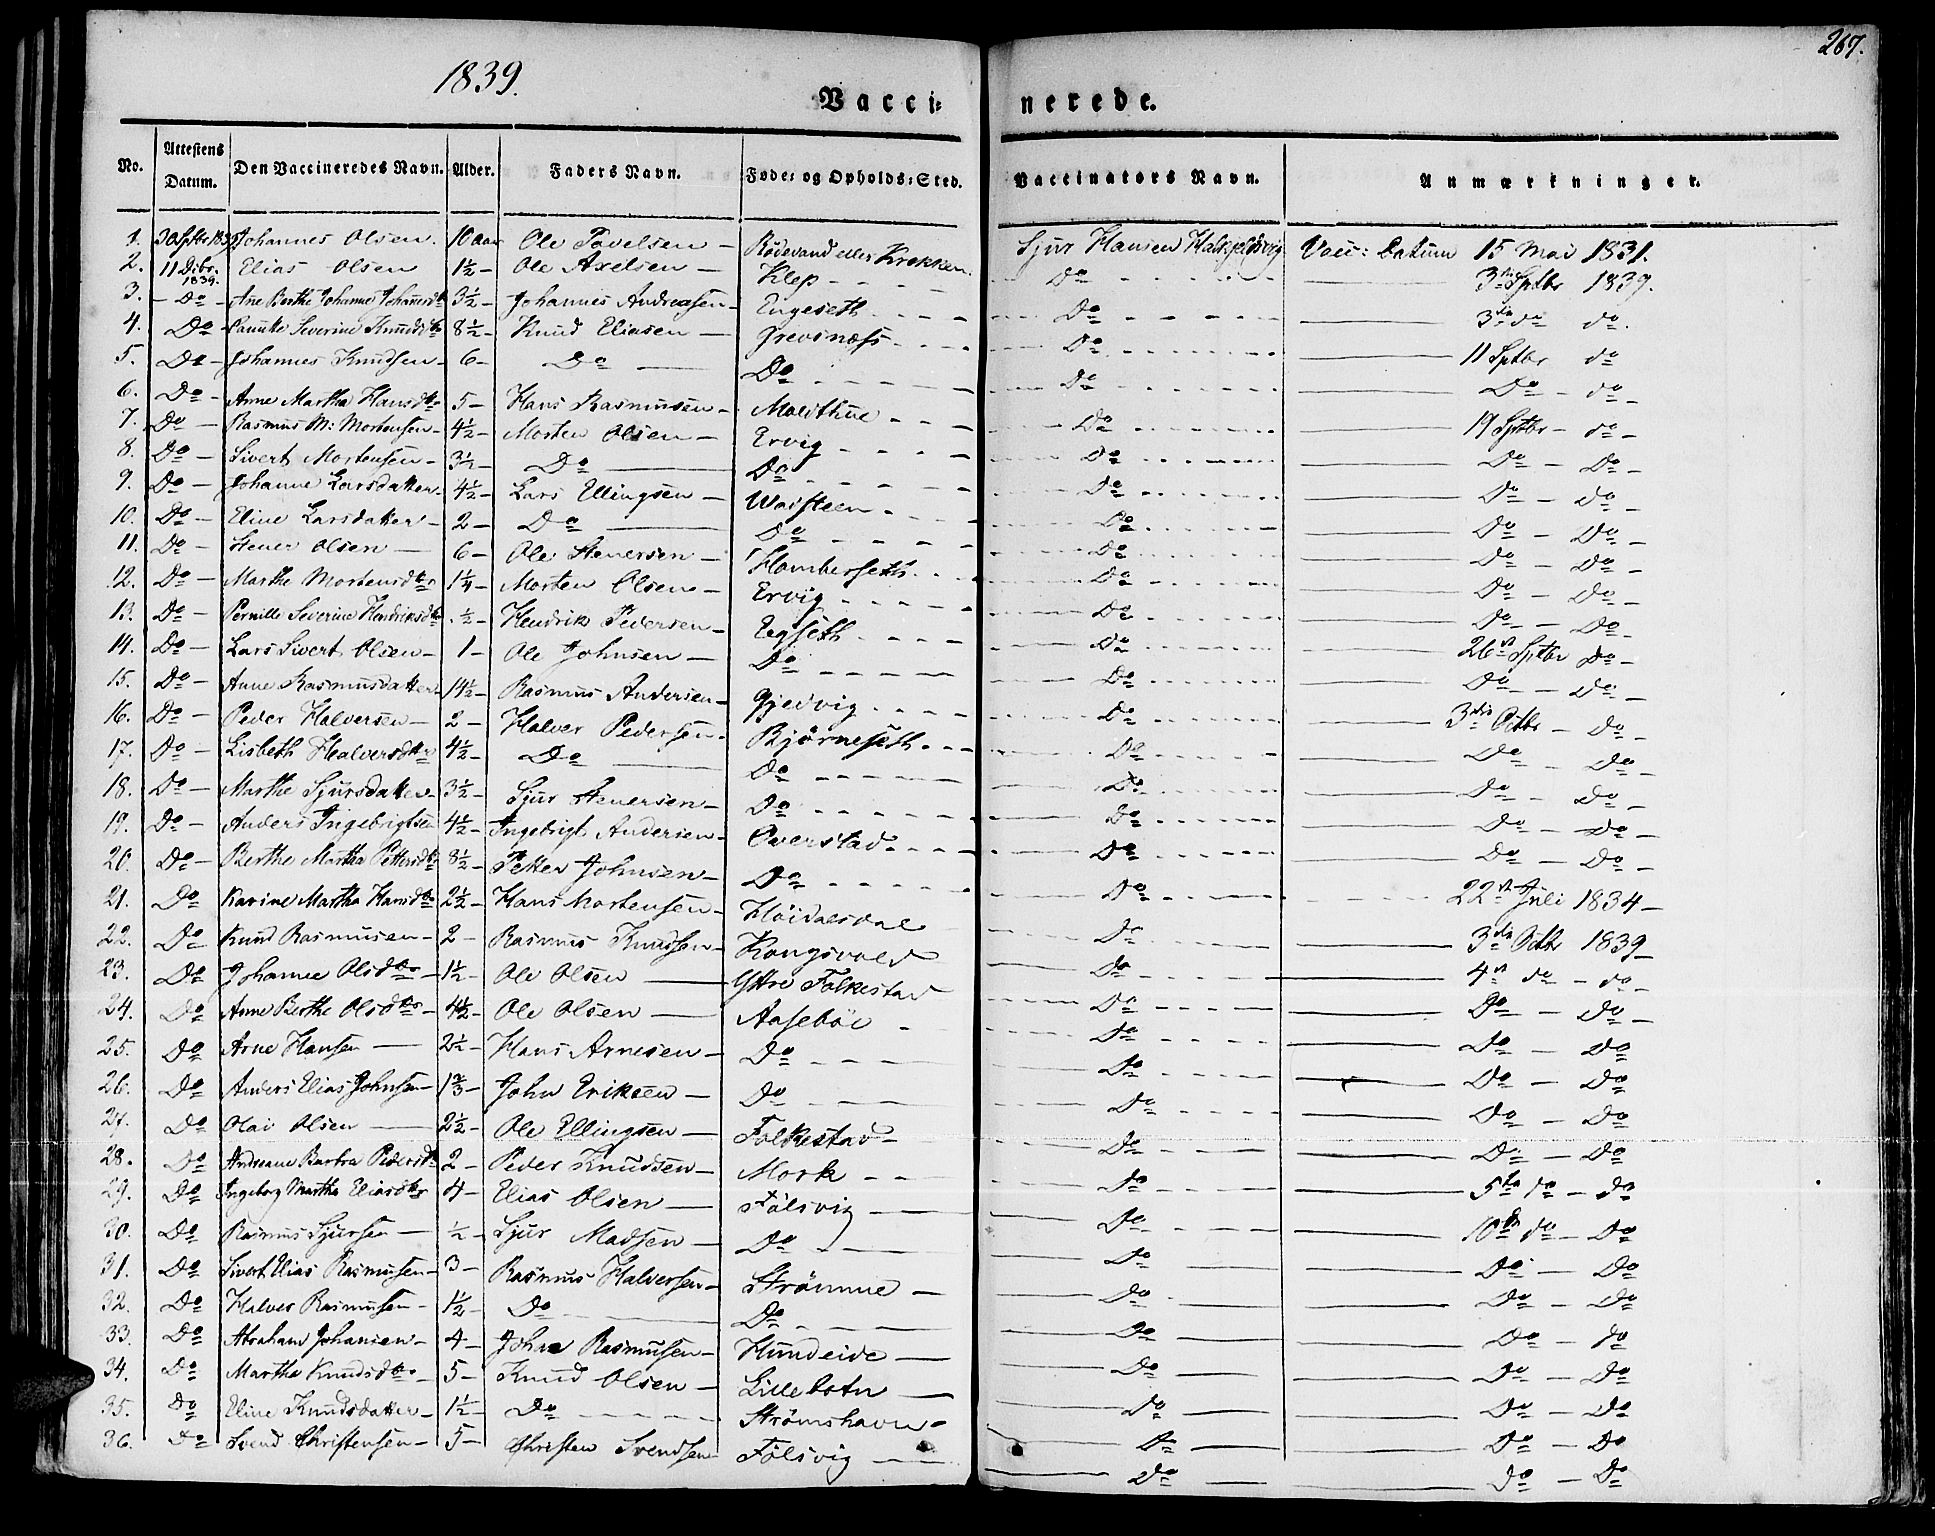 267.
1839.
Vacci=nerede.
No. Attestens Datum. Den Vaccineredes Navn. Alder. Faders Navn. Føde= og Opholds=Sted. Vaccinators Navn. Anmærkninger.
1. 30 Sptbr 1839 Johannes Olsen. 10 aar Ole Povelsen — Rödevand eller Krekken. Sjur Hansen Vacc: Datum 15 Mai 1831.
2. 11 Dcbr. 1839. Elias Olsen 1½ – Ole Axelsen — Klep - - - - Do - - - 3die Sptbr 1839.
3. – Do – Ane Berthe Johanne Johansdtr 3½ – Johannes Andreasen – Engeseth - - - - Do - - - 3die do do.
4. Do – Severine Knudsdtr 8½ – Knud Eliasen — Grevsnæss - - - - Do - - - 11 Sptbr do
5. Do – Johannes Knudsen – 6 – Do — Do - - - - Do - - - Do – do –
6. Do – Anne Martha Hansdtr 5 – Hans Rasmusen – Moldthue - - - - Do - - - 19 Sptbr – do –
7. Do — Rasmus M: Mortensen – 4½ – Morten Olsen — Ervig - - - - Do - - - Do – Do –
8. Do – Sivert Mortensen – 3½ – Do — Do - - - - Do - - - Do – do –
9. Do – Johanne Larsdatter – 4½ – Lars Ellingsen — Watsteen - - - - Do - - - Do – Do –
10. Do – Eline Larsdatter – 2 – Do — Do - - - - Do - - - Do – Do –
11. Do – Stener Olsen — 6 – Ole Stenersen — Homberseth - - - Do - - - Do – Do –
12. Do – Marthe Mortensdtr 1¼ – Morten Olsen — Ervig - - - - Do - - - Do – Do –
13. Do – Pernille Severine Hendriksdtr ½ – Hendrik Pedersen – Egseth - - - - Do - - - 26de Sptbr Do –
14. Do – Lars Sivert Olsen – 1 – Ole Johnsen — Do - - - - Do - - - Do – Do –
15. Do – Anne Rasmusdatter 14½ – Rasmus Andersen – Gjedvig - - - - Do - - - 3die Octbr – Do –
16. Do – Peder Halversen — 2 – Halver Pedersen – Björneseth - - - Do - - - Do – Do –
17. Do – Lisbeth Halversdtr 4½ – Do — Do - - - - Do - - - Do – Do –
18. Do – Marthe Sjursdatter 3½ – Sjur Stenersen – Do - - - - Do - - - Do – Do –
19. Do – Anders Ingebrigtsen 4½ – Ingebrigt Andersen – Overstad - - - - Do - - - Do – Do –
20. Do – Berthe Martha Pettersdtr 8½ – Petter Johnsen – Do - - - - Do - - - 22de Juli 1834 –
21. Do Karine Martha Hansdtr 2½ – Hans Mortensen – Höidalsdal Do - - - 3die Octbr 1839 –
22. Do Knud Rasmusen – 2 – Rasmus Knudsen – Kongsvold Do - - - 4de do – do –
23. Do Johanne Olsdtr – 1½ – Ole Olsen — Ytre Folkestad Do - - - Do – Do –
24. Do Anne Berthe Olsdtr – 4½ – Ole Olsen — Aaseböe - Do - - - Do – Do
25. Do Arne Hansen — 2½ – Hans Arnesen – Do - - - Do - - - Do – Do
26. Do Anders Elias Johnsen – 1⅔ – John Eriksen – Do - - - Do - - - Do – Do
27. Do Olai Olsen — 2½ – Ole Ellingsen – Folkestad – Do - - - Do – Do
28. Do Andreane Barbra Pedersdtr 2 – Peder Knudsen – Mork - - Do - - - 5te do – do
29. Do Ingeborg Martha Eliasdtr 4 – Elias Olsen — Fölsvig — Do - - - 10de do – Do
30. Do Rasmus Sjursen — ½ – Sjur Madsen — Do - — Do — Do – Do
31. Do Sivert Elias Rasmusen – 3 – Rasmus Halversen – Strömme — Do — Do – Do
32. Do Halver Rasmusen – 1½ Do — Do - - - Do — Do – do
33. Do Abraham Johansen – 4 – Johan Rasmusen – Hundeide — Do — Do – Do
34. Do Martha Knudsdtr 5 – Knud Olsen — Lillebotn — Do — Do – Do
35. Do Eline Knudsdatter – 1½ – Do - - - - Strömshavn – Do — Do – Do
36. Do Svend Christensen – 5 – Christen Svendsen Fölsvig — Do — Do – Do